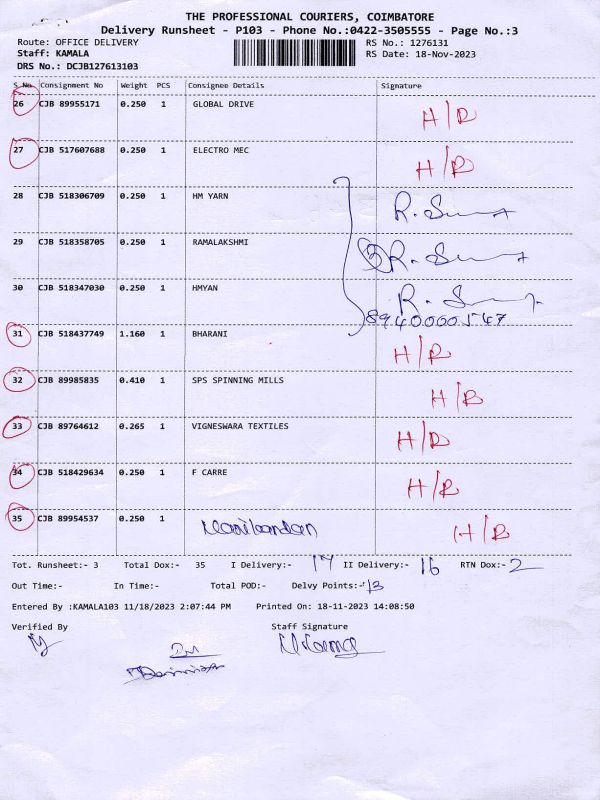 THE PROFESSIONAL COURIERS, COIMBATORE
Delivery Runsheet - P103 - Phone No.:0422-3505555 - Page No.:3
Route: OFFICE DELIVERY RS No.: 1276131
Staff: KAMALA RS Date: 18-Nov-2023
DRS No.: DCJB127613103
S No. Consignment No Weight PCS Consignee Details Signature
26 CJB 89955171 0.250 1 GLOBAL DRIVE H/R
27 CJB 517607688 0.250 1 ELECTRO MEC H/R
28 CJB 518306709 0.250 1 HM YARN
29 CJB 518358705 0.250 1 RAMALAKSHMI 3
30 CJB 518347030 0.250 1 HMYAN
8940000547
31 CJB 518437749 1.160 1 BHARANI H/R
32 CJB 89985835 0.410 1 SPS SPINNING MILLS H/R
33 CJB 89764612 0.265 1 VIGNESWARA TEXTILES H/R
34 CJB 518429634 0.250 1 F CARRE H/R
35 CJB 89954537 0.250 1 Manikandan H/R
Tot. Runsheet:- 3 Total Dox:- 35 I Delivery:- 17 II Delivery:- 16 RTN Dox:- 2
Out Time:- In Time:- Total POD:- Delvy Points:- 13
Entered By :KAMALA103 11/18/2023 2:07:44 PM Printed On: 18-11-2023 14:08:50
Verified By Staff Signature